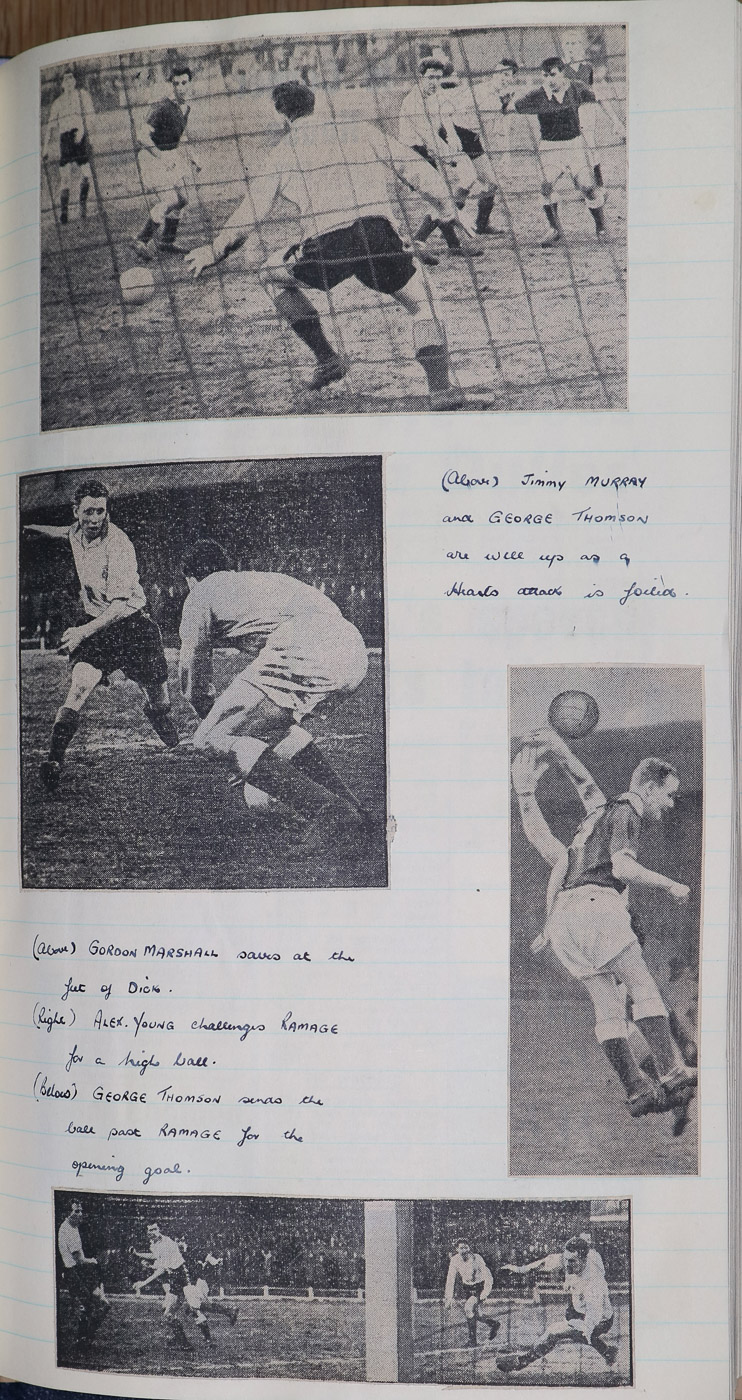 (Above) Jimmy MURRAY
and GEORGE THOMSON
are well up as a
Hearts attack is foiled.
(Above) GORDON MARSHALL saves at the
feet of DICK.
(Right) ALEX. YOUNG challenges RAMAGE
for a high ball.
(Below) GEORGE THOMSON sends the
ball past RAMAGE for the
opening goal.